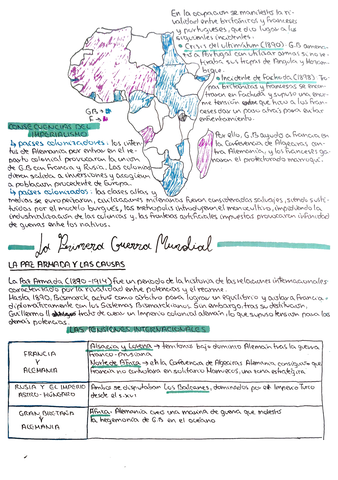 En la ocupación se manifiesta la ri-
validad entre británicos y franceses
y portugueses, que dio lugar a los
siguientes incidentes:
• Crisis del ultimátum (1890). G.B amena-
a Portugal con utilizar armas si no re-
tiraba sus tropas de Angola y Mozam-
bique.
• Incidente de Fachoda (1898). Tro-
pas británicas y francesas se encon-
traron en Fachoda y supuso una enor-
me tensión que hizo a los fran-
ceses dar un paso atrás para evitar
enfrentamiento.
GB →
F →
Por ello, G.B ayudó a Francia en
la Conferencia de Algeciras con-
tra Alemania, y los franceses ga-
naron el protectorado marroquí.
CONSECUENCIAS DEL
IMPERIALISMO
↳ países colonizadores: los inten-
tos de Alemania por entrar en el re-
parto colonial provocaron la unión
de G.B con Francia y Rusia. Las colonias
dieron salida a inversiones y acogieron
a población procedente de Europa.
↳ países colonizados: las clases altas y
medias se europeizaron, civilizaciones milenarias fueron consideradas salvajes, siendo susti-
tuidas por el modelo burgués, las metrópolis introdujeron el monocultivo, impidiendo la
industrialización de las colonias y, las fronteras artificiales impuestas provocaron infinidad
de guerras entre los nativos.
La Primera Guerra Mundial
LA PAZ ARMADA Y LAS CAUSAS
La Paz Armada (1890-1914) fue un período de la historia de las relaciones internacionales
caracterizado por la rivalidad entre potencias y el rearme.
Hasta 1890, Bismarck, actuó como árbitro para lograr un equilibrio y aislar a Francia
diplomáticamente con los Sistemas Bismarckianos. Sin embargo, tras su destitución,
Guillermo II trató de crear un Imperio colonial alemán, lo que supuso tensión para las
demás potencias.
LAS TENSIONES INTERNACIONALES
FRANCIA
Y
ALEMANIA
Alsacia y Lorena → territorios bajo dominio Alemán tras la guerra
franco-prusiana
Norte de África → en la Conferencia de Algeciras Alemania consiguió que
Francia no controlara en solitario Marruecos, una zona estratégica
RUSIA Y EL IMPERIO
AUSTRO-HÚNGARO
Ambos se disputaban Los Balcanes, dominados por el Imperio Turco
desde el s.XVI
GRAN BRETAÑA
Y
ALEMANIA
África: Alemania creó una marina de guerra que molestó
la hegemonía de G.B en el océano